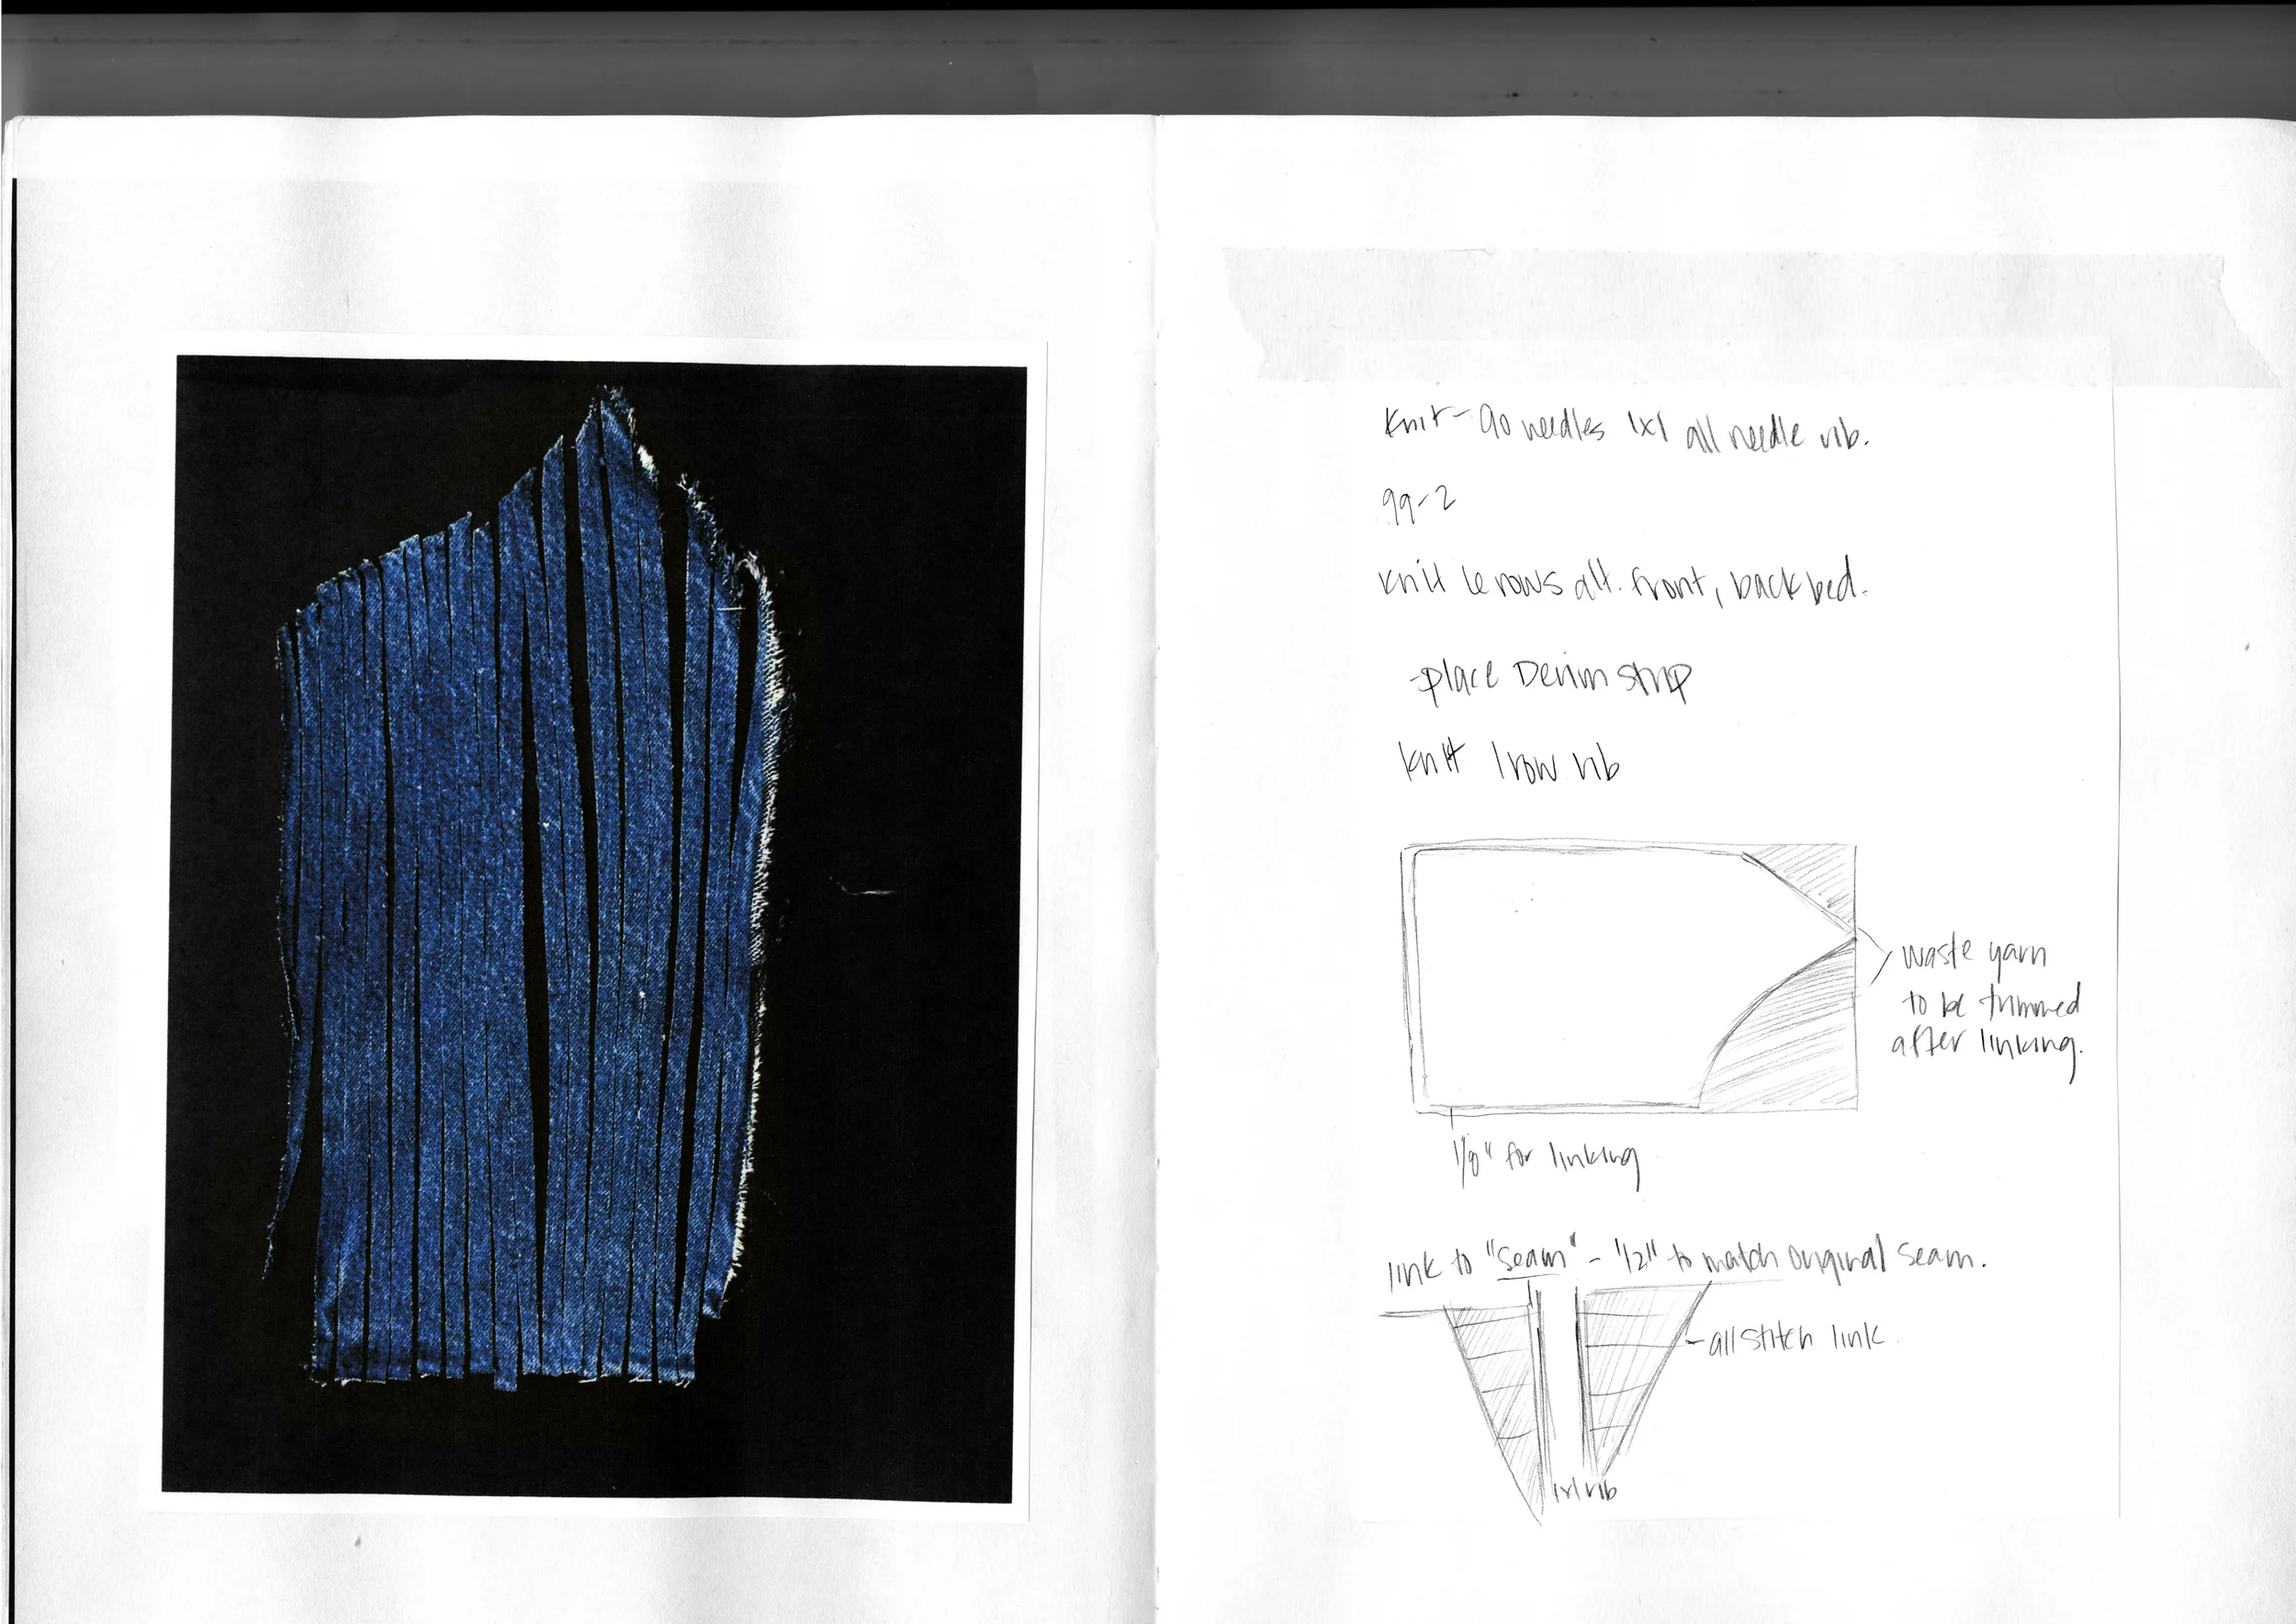 knit - 90 needles 1x1 all needle rib.
99-2
knit 6 rows alt. front, back bed.
- place Denim strip
knit 1 row rib
waste yarn
to be trimmed
after linking.
1/8" for linking
link to "seam" - 1/2" to match original seam.
- all stitch link.
1x1 rib